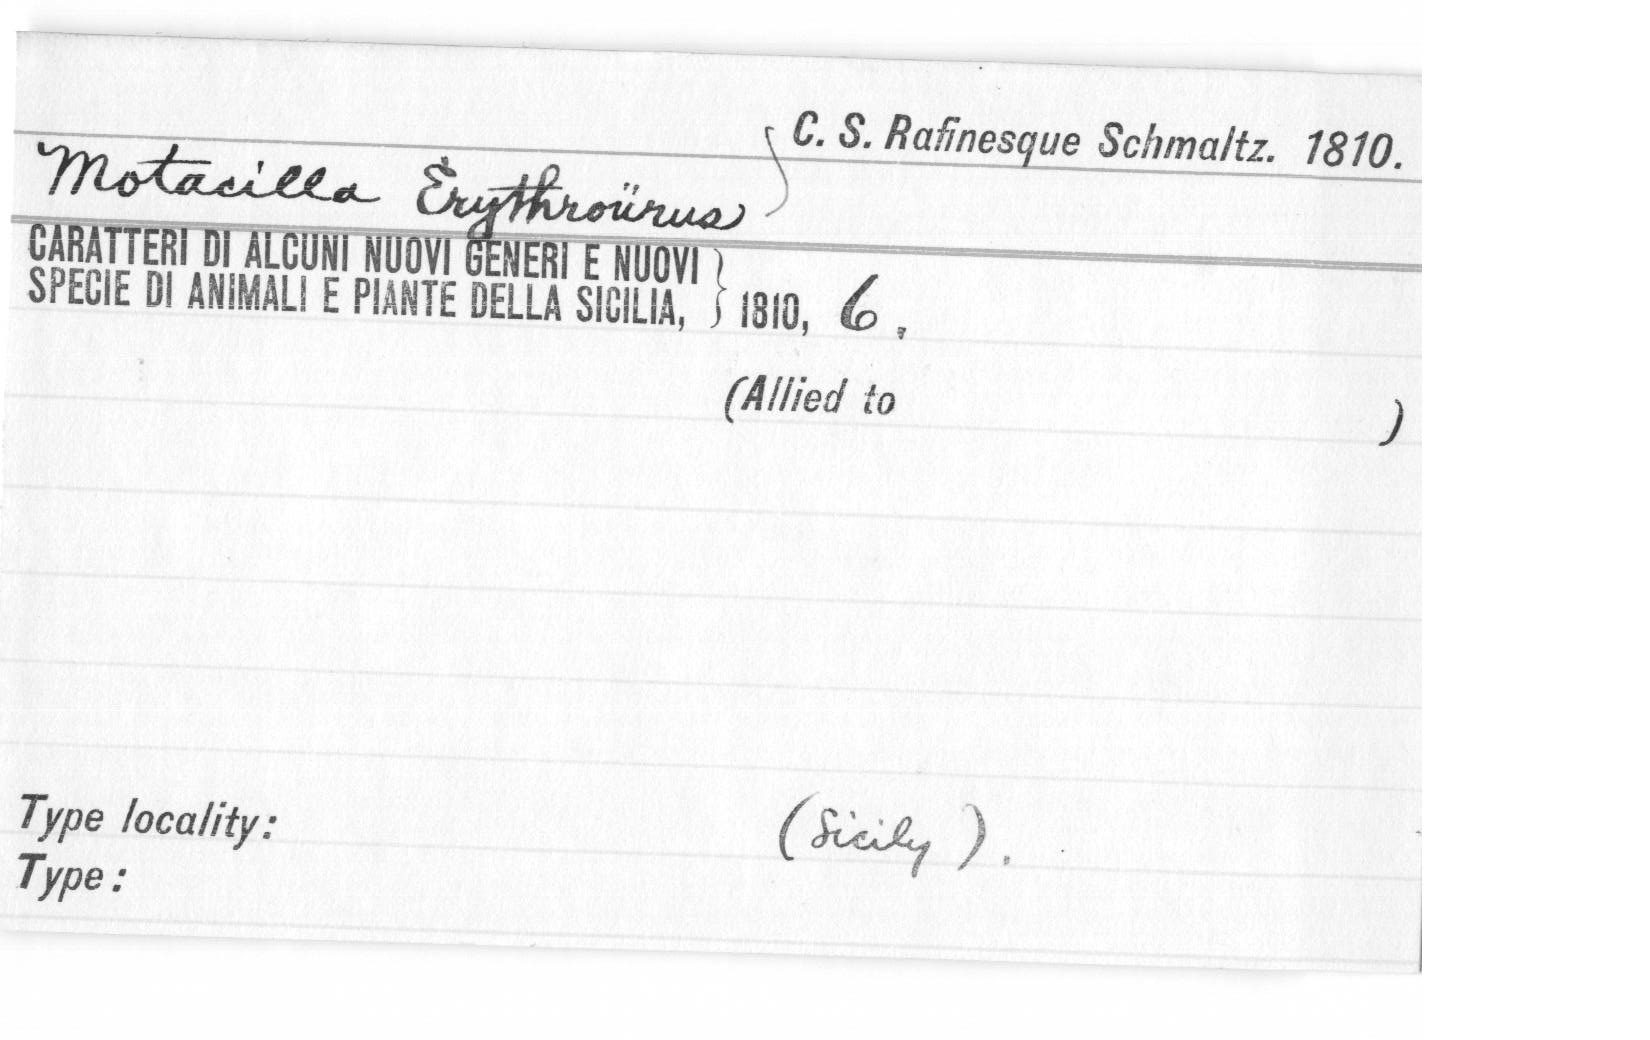 C. S. Rafinesque Schmaltz. 1810.
Motacilla Erythroürus
CARATTERI DI ALCUNI NUOVI GENERI E NUOVI
SPECIE DI ANIMALI E PIANTE DELLA SICILIA, } 1810, 6.
(Allied to )
Type locality: (Sicily).
Type: